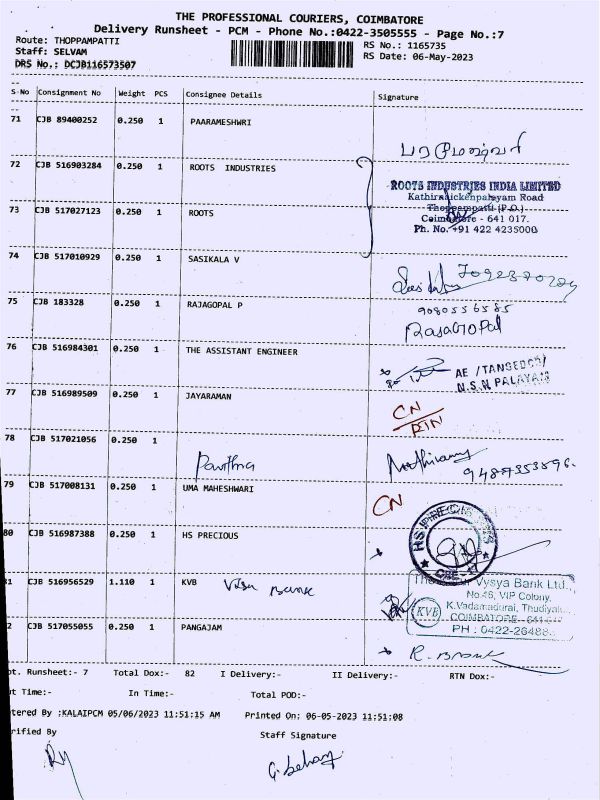 THE PROFESSIONAL COURIERS, COIMBATORE
Delivery Runsheet - PCM - Phone No.:0422-3505555 - Page No.:7
Route: THOPPAMPATTI
RS No.: 1165735
Staff: SELVAM
RS Date: 06-May-2023
DRS No.: DCJB116573507
S-No Consignment No Weight PCS Consignee Details Signature
71 CJB 89400252 0.250 1 PAARAMESHWRI
72 CJB 516903284 0.250 1 ROOTS INDUSTRIES
ROOTS INDUSTRIES INDIA LIMITED
Kathirnaickenpalayam Road
Thoppampatti (P.O.)
73 CJB 517027123 0.250 1 ROOTS
Coimbatore - 641 017.
Ph. No. +91 422 4235000
74 CJB 517010929 0.250 1 SASIKALA V
75 CJB 183328 0.250 1 RAJAGOPAL P
9080556585
RajaGopal
76 CJB 516984301 0.250 1 THE ASSISTANT ENGINEER
AE /TANGEDCO/
N.S.N PALAYAM
77 CJB 516989509 0.250 1 JAYARAMAN
CN
RTN
78 CJB 517021056 0.250 1
Pavithra
9487353596.
79 CJB 517008131 0.250 1 UMA MAHESHWARI
CN
80 CJB 516987388 0.250 1 HS PRECIOUS
HS PRECIOUS
CBE
1 CJB 516956529 1.110 1 KVB
Vysya Bank Ltd.,
No.46, VIP Colony,
KVB K.Vadamadurai, Thudiyal
COIMBATORE - 641
PH : 0422-26488
2 CJB 517055055 0.250 1 PANGAJAM
pt. Runsheet:- 7 Total Dox:- 82 I Delivery:- II Delivery:- RTN Dox:-
ut Time:- In Time:- Total POD:-
tered By :KALAIPCM 05/06/2023 11:51:15 AM Printed On: 06-05-2023 11:51:08
rified By Staff Signature